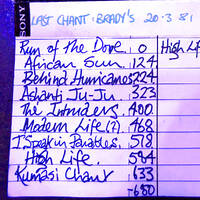 SONY
LAST CHANT: BRADY'S 20-3-81
Run of the Dove 0
African Sun 124
Behind Hurricanes 224
Ashanti Ju-Ju 323
The Intruders 400
Modern Life(?) 468
I Speak in Parables 518
High Life 594
Kumasi Chant 633
680
High Li